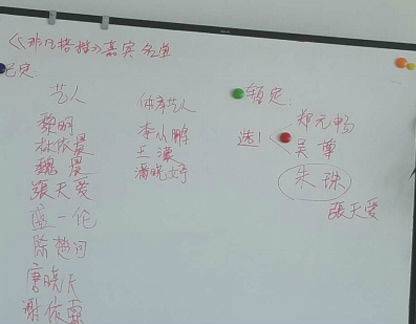 《非凡搭档》嘉宾名单
已定:
艺人
黎明
林依晨
魏晨
張天爱
盛一伦
陈楚河
唐晓天
谢依霖
体育艺人
李小鹏
王濛
潘晓婷
暂定:
选1
郑元畅
吴尊
朱珠
張天爱